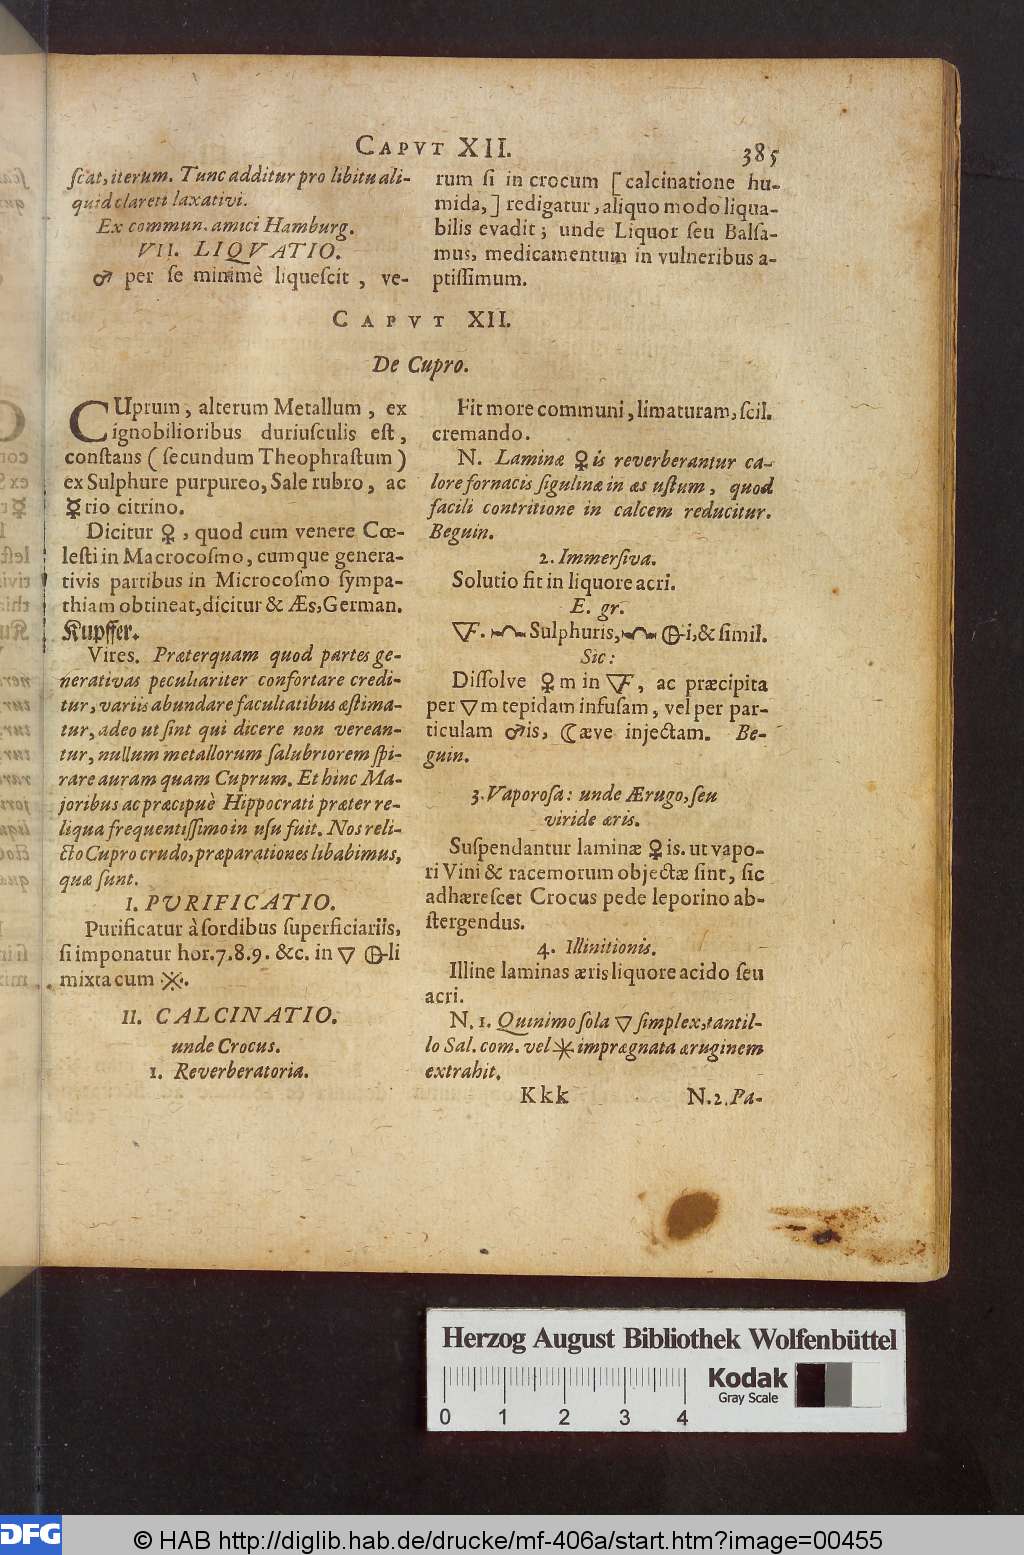 CAPVT XII. 385
ſcat, iterum. Tunc additur pro libitu ali-
quid clareti laxativi.
Ex commun. amici Hamburg.
VII. LIQVATIO.
♂ per ſe minimè liqueſcit, ve-
rum ſi in crocum [calcinatione hu-
mida,] redigatur, aliquo modo liqua-
bilis evadit; unde Liquor ſeu Balſa-
mus, medicamentum in vulneribus a-
ptiſſimum.
CAPVT XII.
De Cupro.
CUprum, alterum Metallum, ex
ignobilioribus duriuſculis eſt,
conſtans (ſecundum Theophraſtum)
ex Sulphure purpureo, Sale rubro, ac
☿rio citrino.
Dicitur ♀, quod cum venere Cœ-
leſti in Macrocoſmo, cumque genera-
tivis partibus in Microcoſmo ſympa-
thiam obtineat, dicitur & Æs, German.
Kupffer.
Vires. Præterquam quod partes ge-
nerativas peculiariter confortare credi-
tur, variis abundare facultatibus æſtima-
tur, adeo ut ſint qui dicere non verean-
tur, nullum metallorum ſalubriorem ſpi-
rare auram quam Cuprum. Et hinc Ma-
joribus ac præcipuè Hippocrati præter re-
liqua frequentiſſimo in uſu fuit. Nos reli-
cto Cupro crudo, præparationes libabimus,
quæ ſunt.
I. PURIFICATIO.
Purificatur à ſordibus ſuperficiariis,
ſi imponatur hor. 7. 8. 9. &c. in 🜄 🜕li
mixta cum ※.
II. CALCINATIO.
unde Crocus.
1. Reverberatoria.
Fit more communi, limaturam, ſcil.
cremando.
N. Laminæ ♀is reverberantur ca-
lore fornacis figulinæ in æs uſtum, quod
facili contritione in calcem reducitur.
Beguin.
2. Immerſiva.
Solutio fit in liquore acri.
E. gr.
🜅. Sulphuris, 🜕i, & ſimil.
Sic:
Diſſolve ♀m in 🜅, ac præcipita
per 🜄m tepidam infuſam, vel per par-
ticulam ♂is, ☾æve injectam. Be-
guin.
3. Vaporoſa: unde Ærugo, ſeu
viride æris.
Suſpendantur laminæ ♀is. ut vapo-
ri Vini & racemorum objectæ ſint, ſic
adhæreſcet Crocus pede leporino ab-
ſtergendus.
4. Illinitionis.
Illine laminas æris liquore acido ſeu
acri.
N. 1. Quinimo ſola 🜄 ſimplex, tantil-
lo Sal. com. vel ✳ imprægnata æruginem
extrahit.
Kkk N. 2. Pa-
Herzog August Bibliothek Wolfenbüttel
0 1 2 3 4
Kodak
Gray Scale
DFG
© HAB http://diglib.hab.de/drucke/mf-406a/start.htm?image=00455